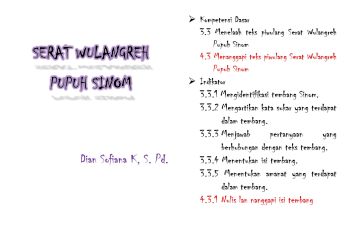 SERAT WULANGREH
PUPUH SINOM
Dian Sofiana K, S. Pd.
➢ Kompetensi Dasar
3.3 Menelaah teks piwulang Serat Wulangreh
Pupuh Sinom
4.3 Menanggapi teks piwulang Serat Wulangreh
Pupuh Sinom
➢ Indikator
3.3.1 Mengidentifikasi tembang Sinom.
3.3.2 Mengartikan kata sukar yang terdapat
dalam tembang.
3.3.3 Menjawab pertanyaan yang
berhubungan dengan teks tembang.
3.3.4 Menentukan isi tembang.
3.3.5 Menentukan amanat yang terdapat
dalam tembang.
4.3.1 Nulis lan nanggapi isi tembang